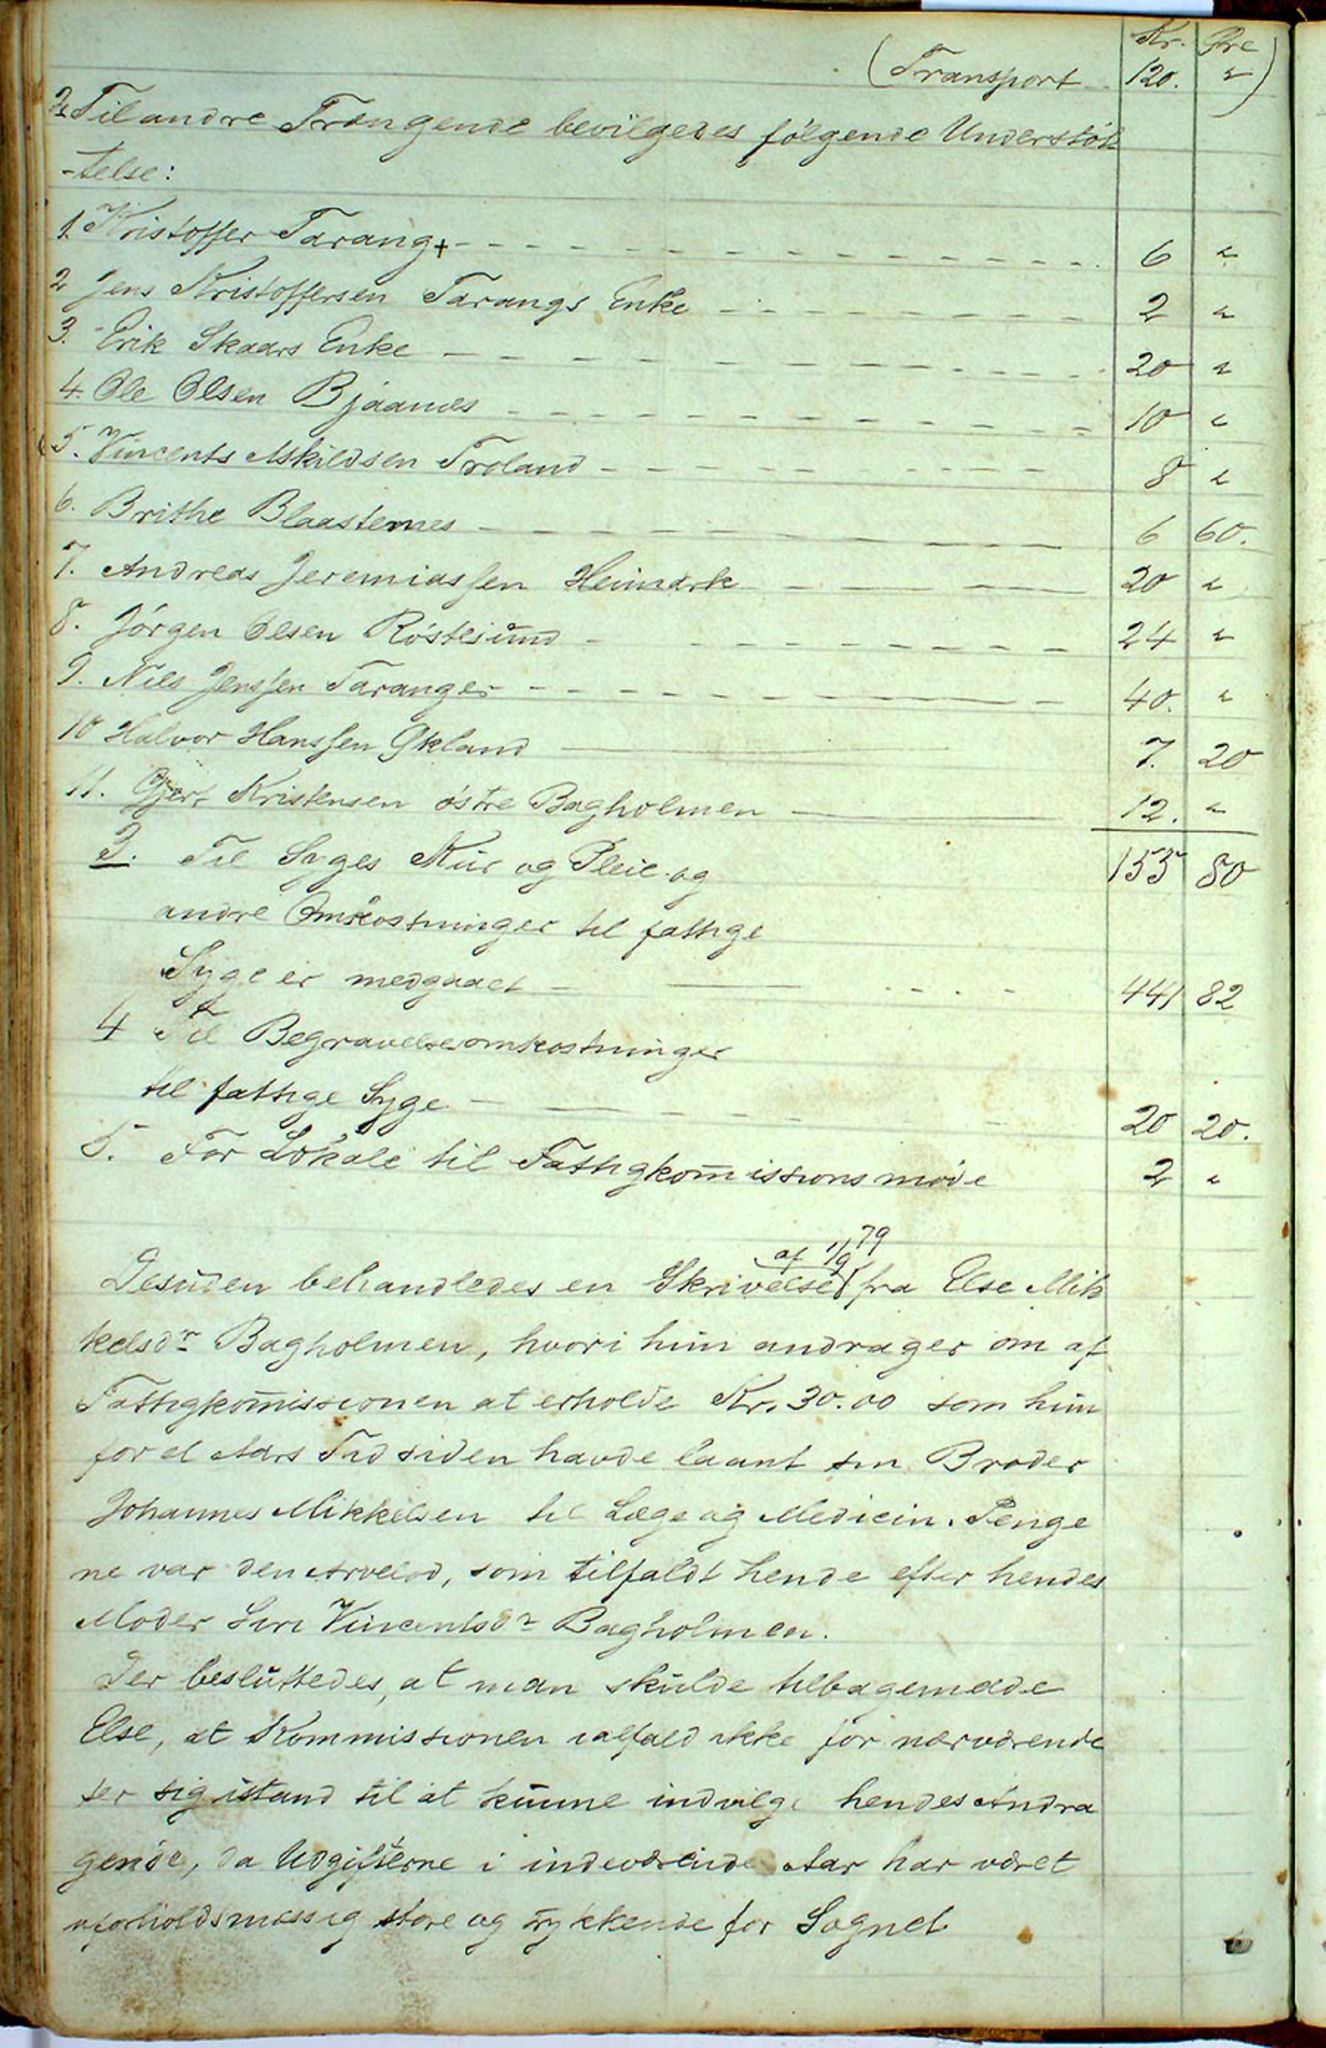 Kr. Øre
(Transport 120. ")
2, Til andre Trængende bevilgedes følgende Understøt
-telse:
1. Kristoffer Tarang+ - - - 6 "
2 Jens Kristoffersen Tarangs Enke - - - 2 "
3. Erik Skaars Enke - - - 20 "
4. Ole Olsen Bjaanæs - - - 10 "
5. Vincents Askildsen Troland - - - 8 "
6. Brithe Blaasternes - - - 6 60.
7. Andreas Jeremiassen Heimark - - - 20 "
8. Jørgen Olsen Røstesund - - - 24 "
9. Nils Jenssen Taranger - - - 40. "
10 Halvor Hanssen Økland - - - 7. 20
11. Gjert Kristensen østre Bagholmen - - - 12. "
3. Til Syges Kur og Pleie og 155 80
andre Omkostninger til fattige
Syge er medgaaet - - - 441 82
4 Til Begravelsesomkostninger
til fattige Syge - - - 20 20.
5. For Lokale til Fattigkom̄issionsmøde 2 "
af 1/9 79
Desuden behandledes en Skrivelse fra Else Mik
kelsdr Bagholmen, hvori hun andrager om af
Fattigkom̄issionen at erholde Kr. 30.00 som hun
for et Aars Tid siden havde laant sin Broder
Johannes Mikkelsen til Læge og Medicin. Penge
ne var den Arvelod, som tilfaldt hende efter hendes
Moder Siri Vincentsdr Bagholmen.
Der besluttedes, at man skulde tilbagemelde
Else, at Kommissionen ialfald ikke for nærværende
ser sig istand til at kunne indvilge hendes Andra
gende, da Udgifterne i indeværende Aar har været
uforholdsmæssig store og trykkende for Sognet